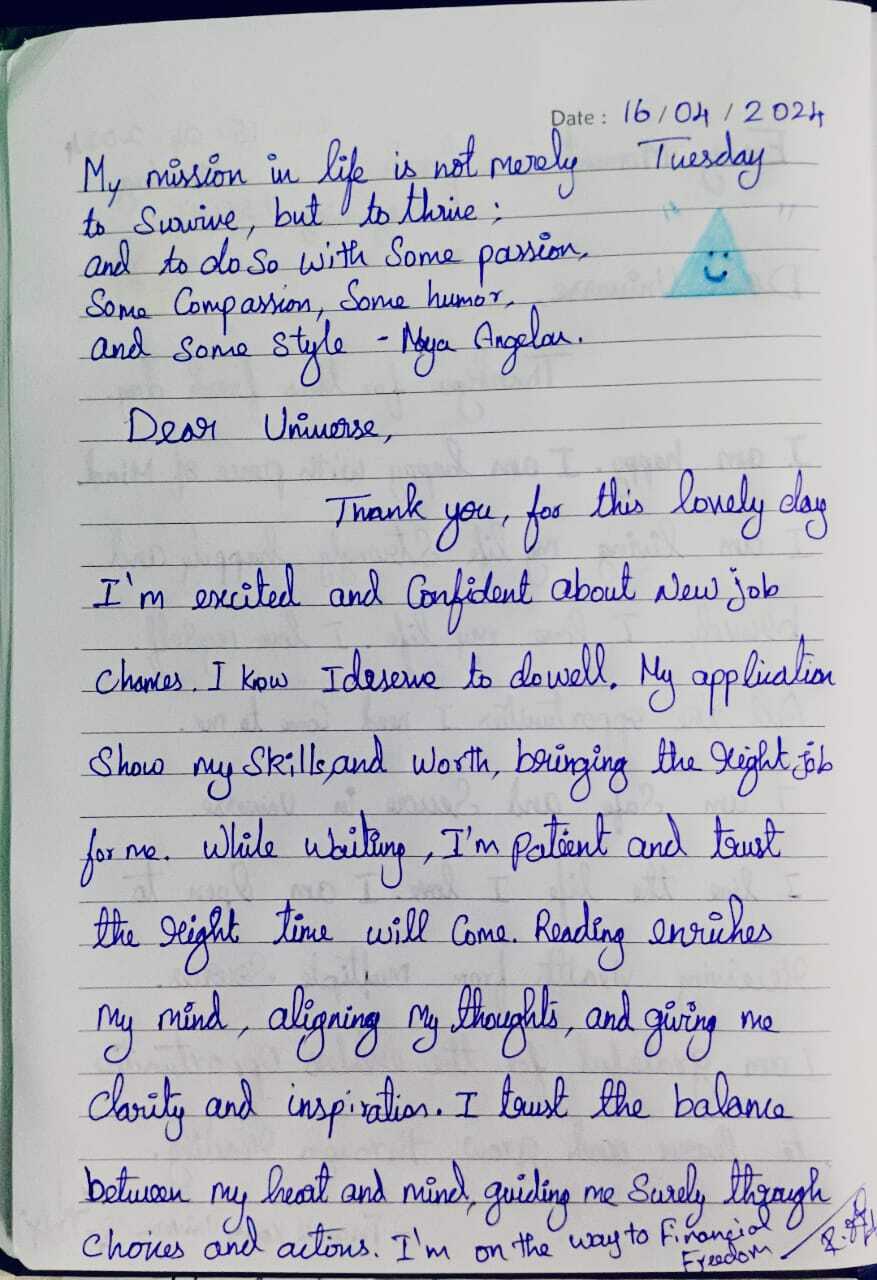 Date : 16/04/2024
My mission in life is not merely Tuesday
to Survive, but to thrive ;
and to do so with Some passion,
Some Compassion, Some humor,
and some style - Maya Angelou.
Dear Universe,
Thank you, for this lovely day
I'm excited and Confident about New job
Chances. I know I deserve to do well. My application
Show my skills, and worth, bringing the right job
for me. While waiting, I'm patient and trust
the right time will come. Reading enriches
my mind, aligning my thoughts, and giving me
Clarity and inspiration. I trust the balance
between my heart and mind, guiding me Surely through
Choices and actions. I'm on the way to Financial
Freedom